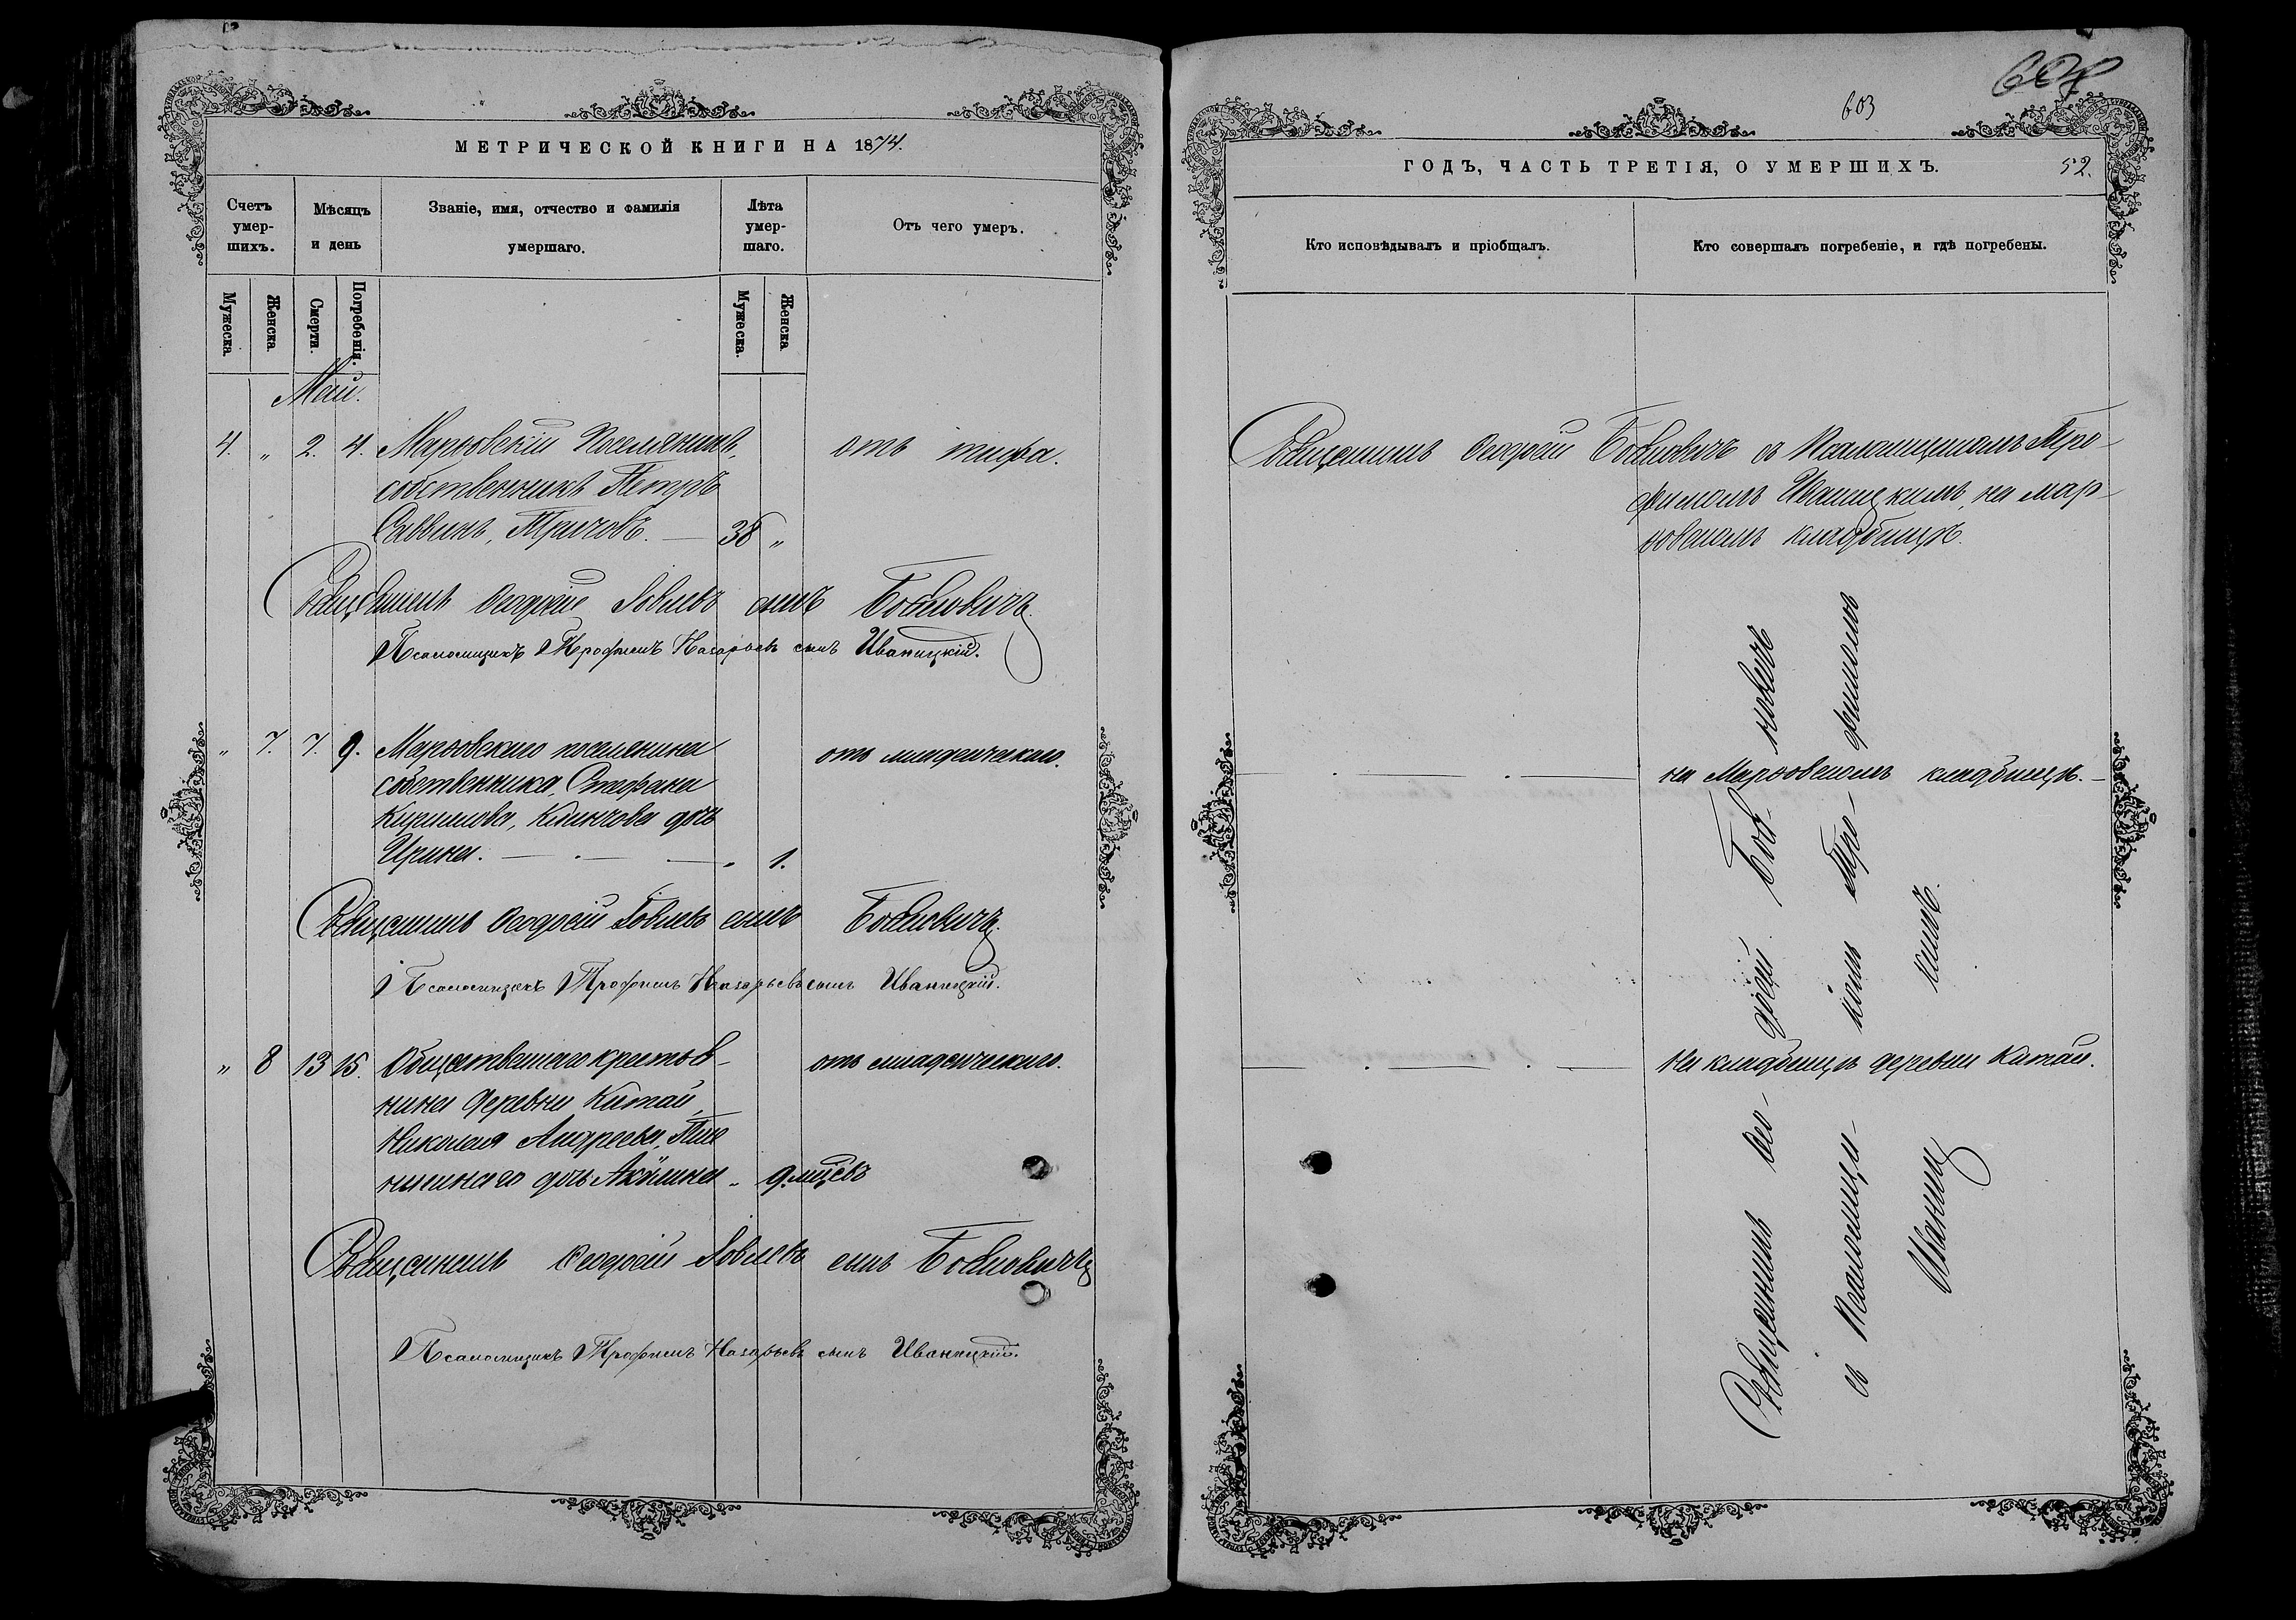 МЕТРИЧЕСКОЙ КНИГИ НА 1874.
Счетъ умер-шихъ.
Мѣсяцъ и день
Званіе, имя, отчество и фамилія умершаго.
Лѣта умер-шаго.
Отъ чего умеръ.
Мужеска.
Женска.
Смерти.
Погребенія.
Мужеска.
Женска
Май.
4. „ 2. 4. Марковскій Поселянинъ, отъ тифа.
собственникъ Петръ
Саввинъ, Тричовъ. — 38 „
Священникъ Ѳеодосій Іовлевъ сынъ Бобиловичъ
Псаломщикъ Трофимъ Назарьевъ сынъ Иваницкій.
„ 7. 7. 9. Марковскаго поселянина отъ младенческаго.
собственника, Стефана
Кирилова, дочь
Ирина. — . — „ 1.
Священникъ Ѳеодосій Іовлевъ сынъ Бобиловичъ.
Псаломщикъ Трофимъ Назарьевъ сынъ Иваницкій.
„ 8 13 15. Общественнаго крестья- отъ младенческаго.
нина деревни Китай,
Николая Андреева,
дочь Акилина „ 9. мцевъ
Священникъ Ѳеодосій Іовлевъ сынъ Бобиловичъ
Псаломщикъ Трофимъ Назарьевъ сынъ Иваницкій.
603
ГОДЪ, ЧАСТЬ ТРЕТІЯ, О УМЕРШИХЪ. 52.
Кто исповѣдывалъ и пріобщалъ.
Кто совершалъ погребеніе, и гдѣ погребены.
Священникъ Ѳеодосій Бобиловичъ съ Псаломщикомъ Тро-
фимомъ Иваницкимъ, на Мар-
ковскомъ кладбищѣ.
на Марковскомъ кладбищѣ. —
На кладбищѣ деревни Китай.
Священникъ Ѳео- досій Боб- иловичъ
съ Псаломщи- комъ Тро- фимомъ
Иваниц кимъ.